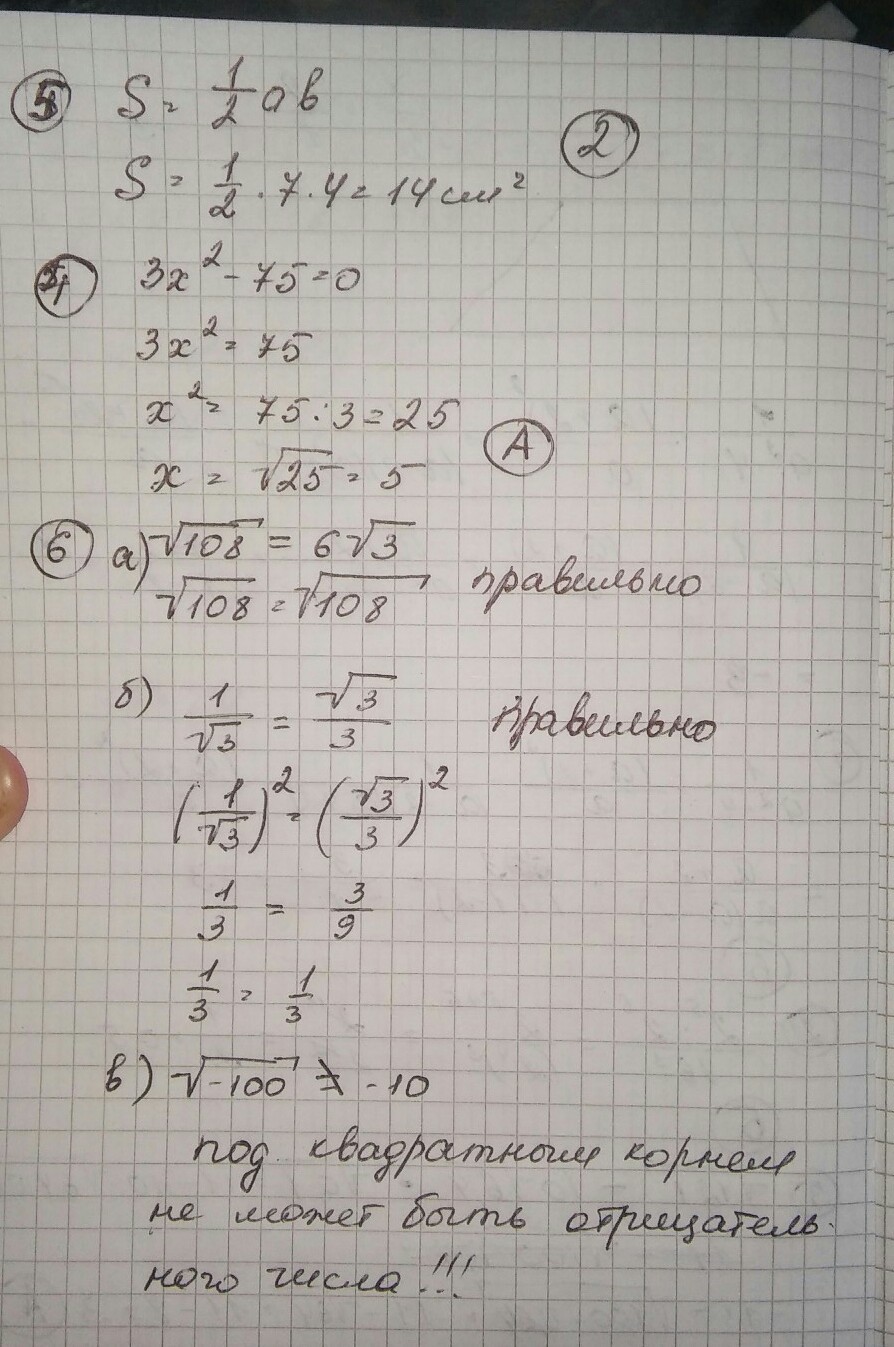 5 S = 1/2 ab
S = 1/2 · 7 · 4 = 14 см² 2
4 3x² - 75 = 0
3x² = 75
x² = 75 : 3 = 25
x = √25 = 5 А
6 а) √108 = 6√3
√108 = √108 правильно
б) 1/√3 = √3/3 правильно
(1/√3)² = (√3/3)²
1/3 = 3/9
1/3 = 1/3
в) √-100 ≠ -10
под квадратным корнем
не может быть отрицатель-
ного числа!!!